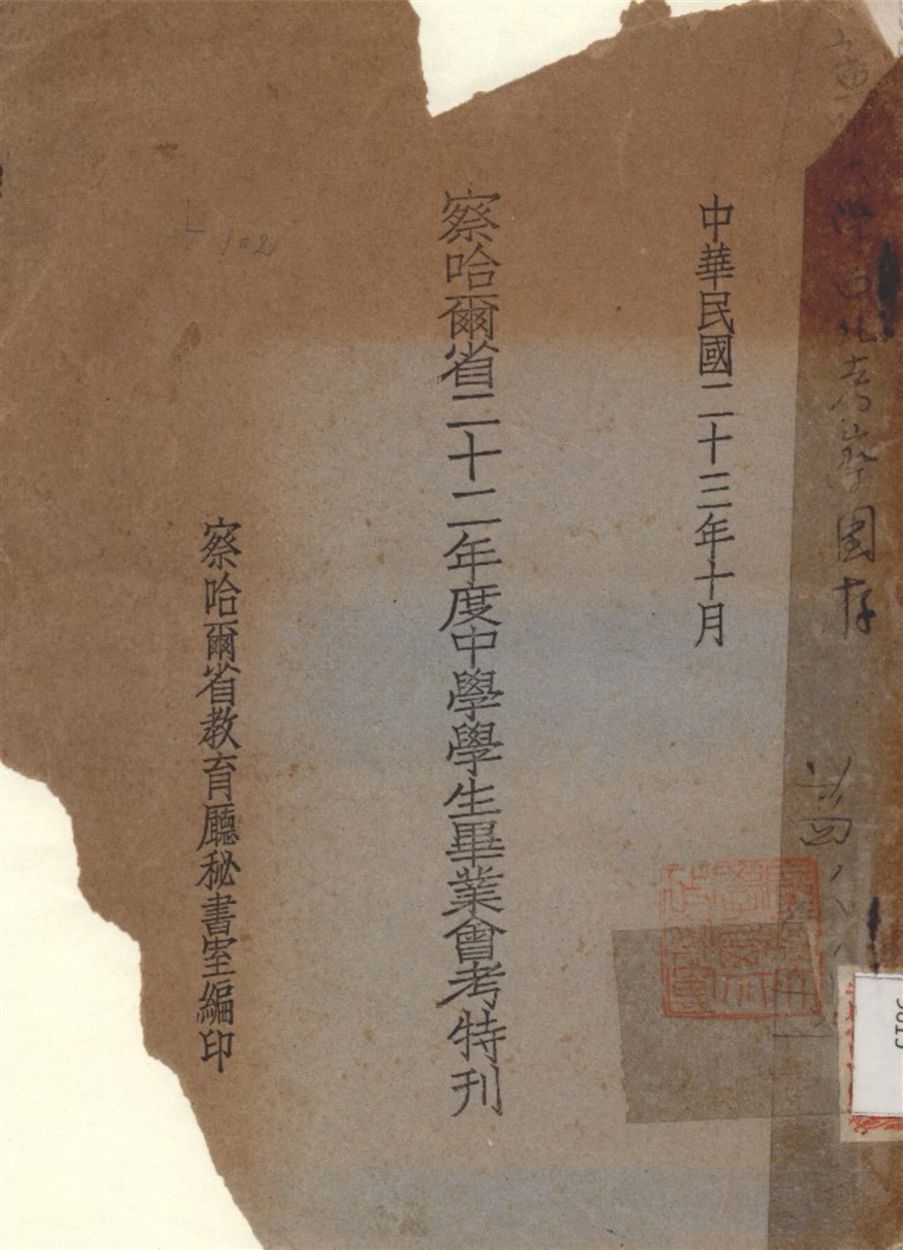 口北考察團存
中華民國二十三年十月
察哈爾省二十二年度中學學生畢業會考特刊
察哈爾省教育廳秘書室編印